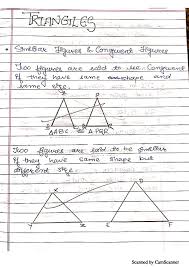 TRIANGLES
• Similar Figures & Congruent Figures
Two figures are said to be Congruent
if they have same shape and
same size.
A P
ΔABC ΔPQR
Two figures are said to be similar
if they have same shape but
different size.
X D
Y Z E F
Scanned by CamScanner